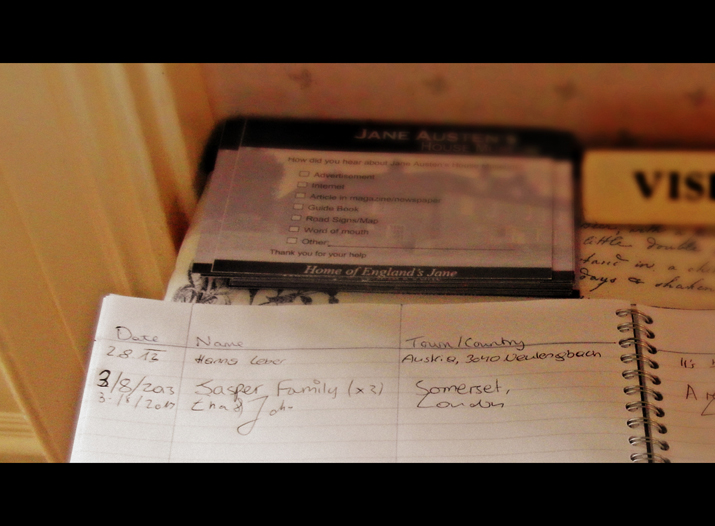 JANE AUSTEN'S
HOUSE
How did you hear about Jane Austen's House
Advertisement
Internet
Article in magazine/newspaper
Guide Book
Road Signs/Map
Word of mouth
Other:
Thank you for your help
Home of England's Jane
VISI
little double
hand in a
days & shado
Date Name Town/Country
2.8.13 Austria, 3040 Neulengbach
3/8/2013 Jasper Family (x3) Somerset,
John London
A